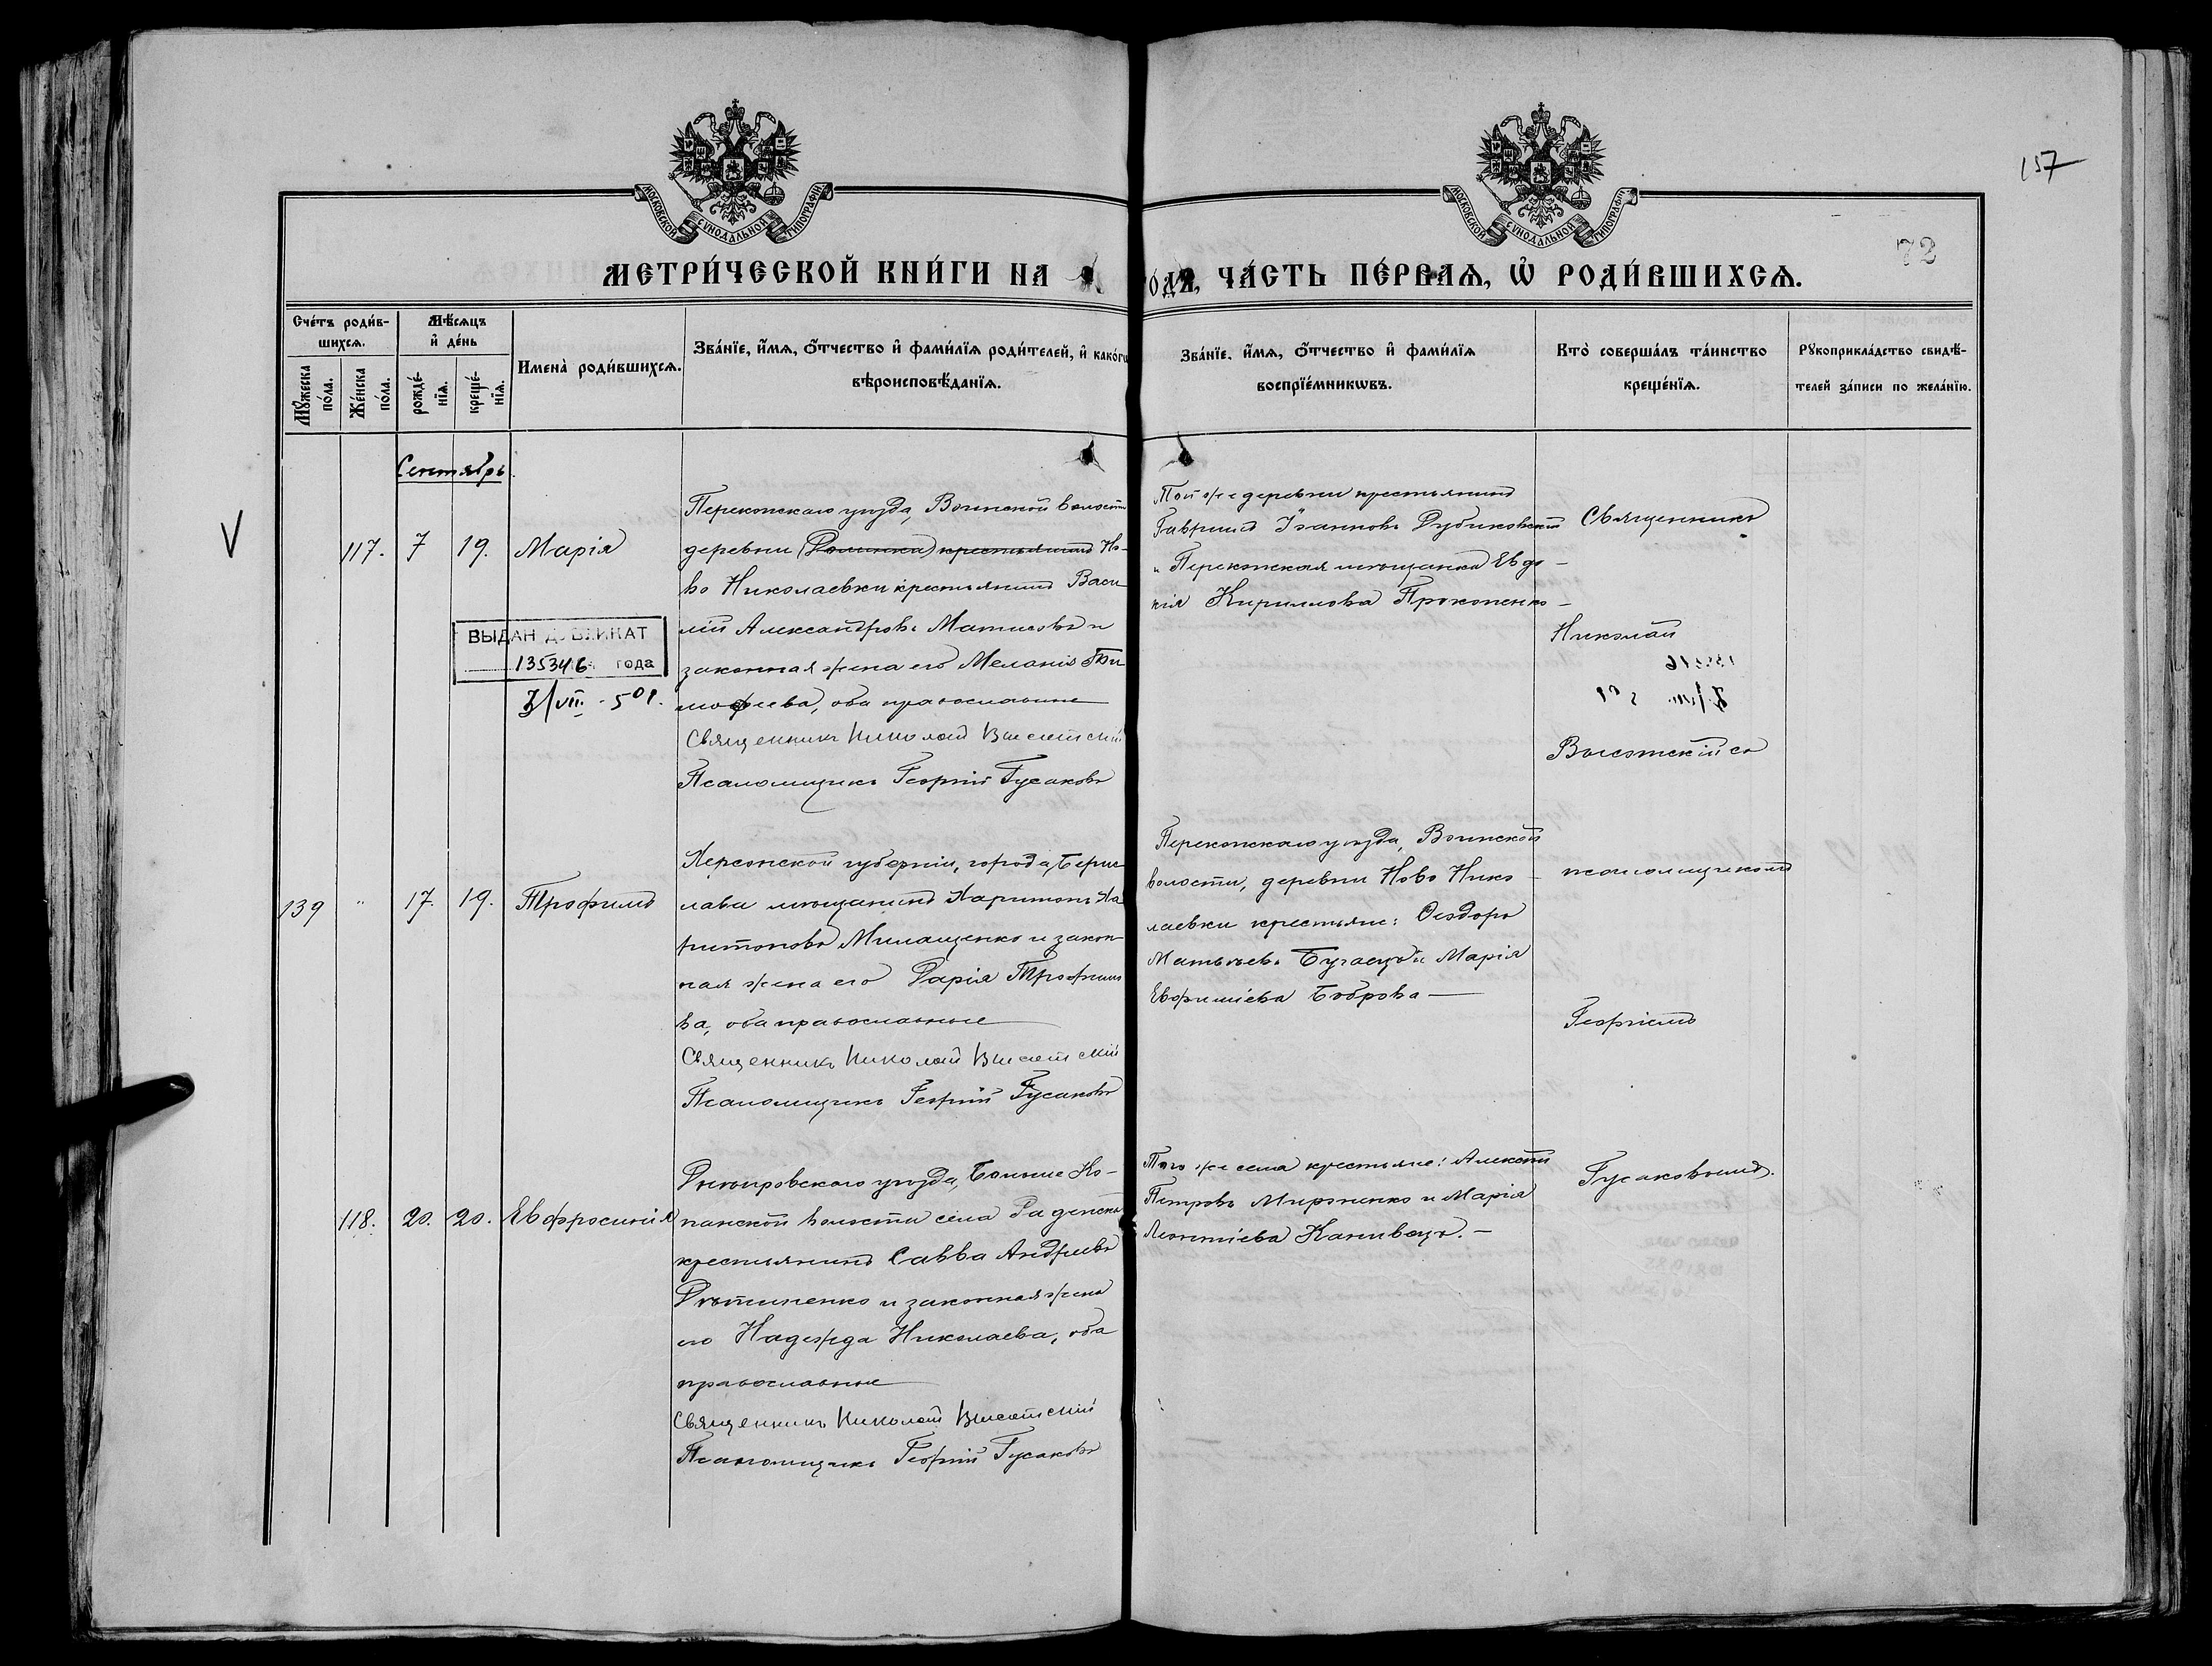 157
72
МОСКОВСКОЙ СУНОДАЛЬНОЙ ТИПОГРАФІИ
МОСКОВСКОЙ СУНОДАЛЬНОЙ ТИПОГРАФІИ
МЕТРИ́ЧЕСКОЙ КНИ́ГИ НА
ГОДЪ, ЧА́СТЬ ПЕ́РВАѦ, Ѡ РОДИ́ВШИХСѦ.
Сче́тъ роди́в-
шихсѧ.
Мꙋжеска по́ла.
Же́нска по́ла.
Мѣ́сѧцъ
и҆ де́нь
рожде́-
нїѧ.
креще́-
нїѧ.
И҆мена̀ роди́вшихсѧ.
Зва́нїе, и҆́мѧ, о҆́тчество и҆ фами́лїѧ роди́телей, и҆ како́гѡ
вѣроисповѣ́данїѧ.
Зва́нїе, и҆́мѧ, о҆́тчество и҆ фами́лїѧ
воспрїе́мникѡвъ.
Кто̀ соверша́лъ та́инство
креще́нїѧ.
Рꙋкоприкла́дство свидѣ́-
телей за́писи по жела́нїю.
Сентябрь
V
117. 7 19. Марія
Перекопскаго уѣзда, Воинской волости
деревни (Долинка) крестьянинъ Но-
во Николаевки крестьянинъ Васи
лій Александровъ Матисовъ и
законная жена его Меланія Ти
моѳеева, оба православные
Священникъ Николай Высотскій
Псаломщикъ Георгій Гусаковъ
ВЫДАН ДУБЛИКАТ
135346 года
3/VII - 50 г.
Той же деревни крестьянинъ
Гавріилъ Іоанновъ Дубиковскій
и Перекопская мѣщанка Евдо-
кія Кириллова Прокопенко -
Священникъ
Николай
Высотскій съ
139 " 17. 19. Трофимъ
Херсонской губерніи, города Берис
лава мѣщанинъ Харитонъ Ха
ритоновъ Милащенко и закон-
ная жена его Дарія Трофимо
ва, оба православные
Священникъ Николай Высотскій
Псаломщикъ Георгій Гусаковъ
Перекопскаго уѣзда, Воинской
волости, деревни Ново Нико-
лаевки крестьяне: Ѳеодоръ
Матвѣевъ Бугаецъ и Марія
Евфиміева Боброва —
псаломщикомъ
Георгіемъ
118. 20. 20. Евфросинія
Днѣпровскаго уѣзда, Больше Ко-
панской волости села Раденска
крестьянинъ Савва Андреевъ
Дѣтиненко и законная жена
его Надежда Николаева, оба
православные
Священникъ Николай Высотскій
Псаломщикъ Георгій Гусаковъ
Того же села крестьяне: Алексѣй
Петровъ Мироненко и Марія
Леонтіева Канивецъ. —
Гусаковымъ.